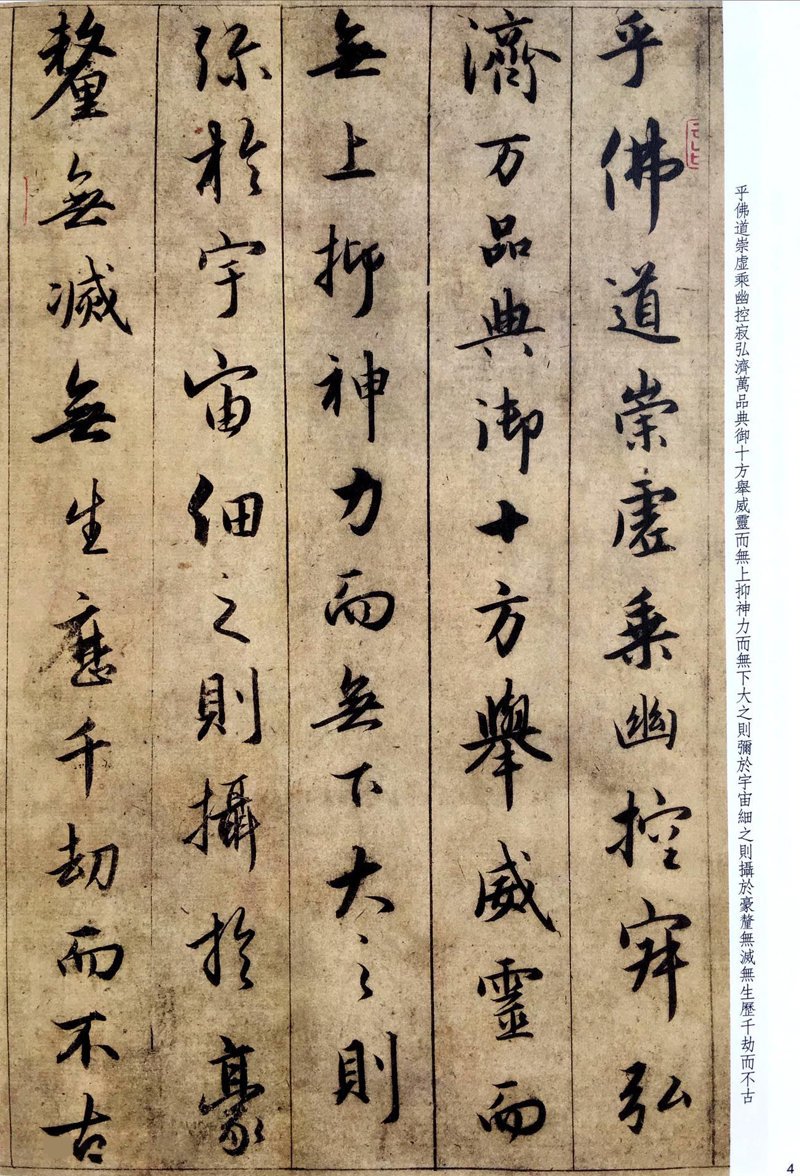 乎佛道崇虛乘幽控寂弘
濟万品典御十方舉威靈而
無上抑神力而無下大之則
彌於宇宙細之則攝於豪
釐無滅無生歷千劫而不古
乎佛道崇虛乘幽控寂弘濟萬品典御十方舉威靈而無上抑神力而無下大之則彌於宇宙細之則攝於豪釐無滅無生歷千劫而不古
4